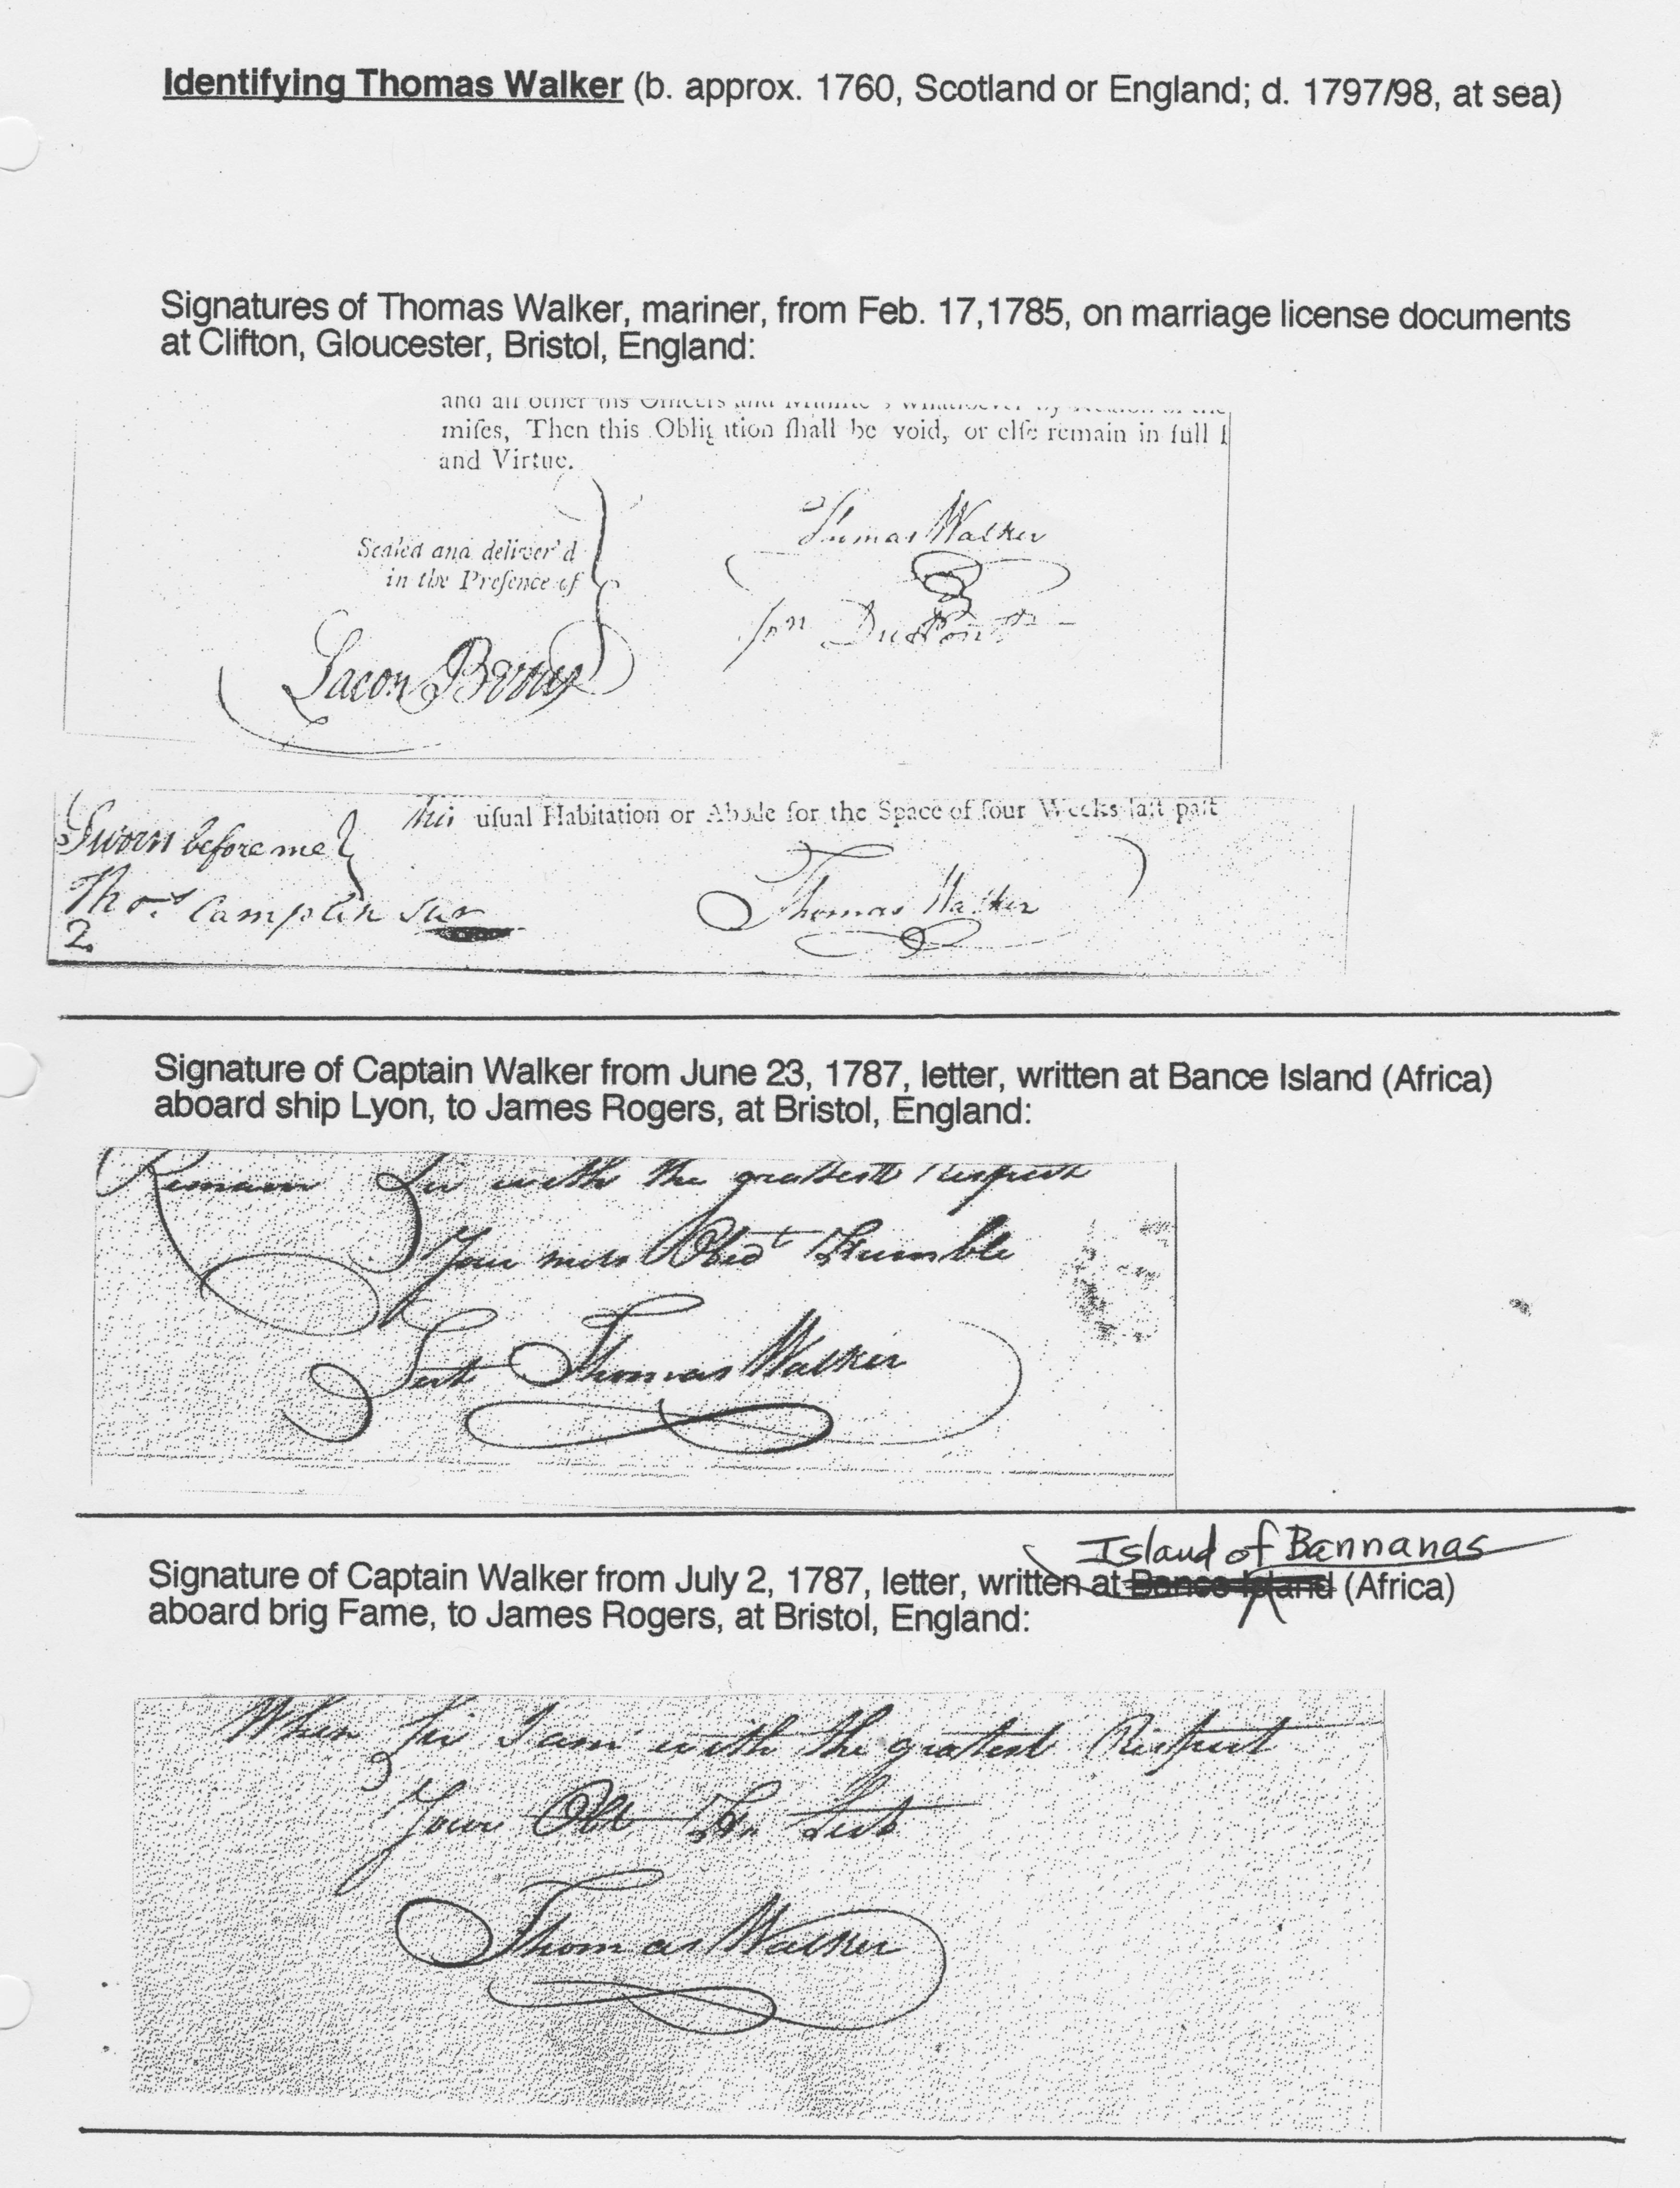 Identifying Thomas Walker (b. approx. 1760, Scotland or England; d. 1797/98, at sea)
Signatures of Thomas Walker, mariner, from Feb. 17,1785, on marriage license documents
at Clifton, Gloucester, Bristol, England:
and all other his Officers and
miſes, Then this Obligation ſhall be void, or elſe remain in full
and Virtue.
Thomas Walker
Sealed and deliver'd
in the Preſence of
Lacon
his uſual Habitation or Abode for the Space of four Weeks laſt paſt
Sworn before me
Thos Camplin Sur
2.
Thomas Walker
Signature of Captain Walker from June 23, 1787, letter, written at Bance Island (Africa)
aboard ship Lyon, to James Rogers, at Bristol, England:
Remain Sir with the greatest respect
Your most Obedt Humble
Servt Thomas Walker
Island of Bannanas
Signature of Captain Walker from July 2, 1787, letter, written at Bance Island (Africa)
aboard brig Fame, to James Rogers, at Bristol, England:
When Sir I am with the greatest Respect
Your Obt Hu Servt
Thomas Walker